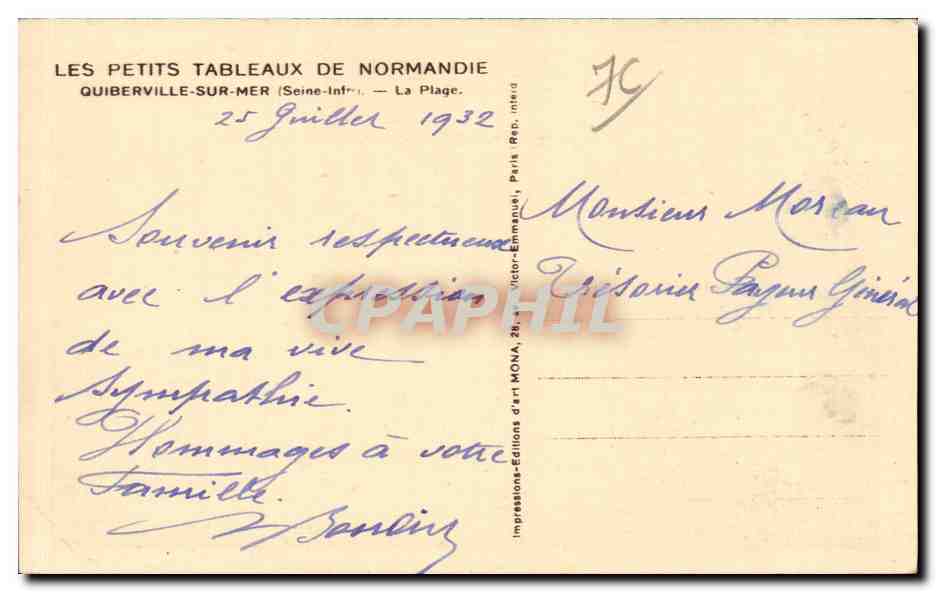 LES PETITS TABLEAUX DE NORMANDIE
QUIBERVILLE-SUR-MER (Seine-Infre). — La Plage.
25 Juillet 1932
Souvenir respectueux
avec l'expression
de ma vive
sympathie.
Hommages à votre
Famille.
Impressions-Editions d'art MONA, 28, av. Victor-Emmanuel, Paris (Rep. interd
7C
Monsieur Moreau
Trésorier Payeur Général
CPAPHIL